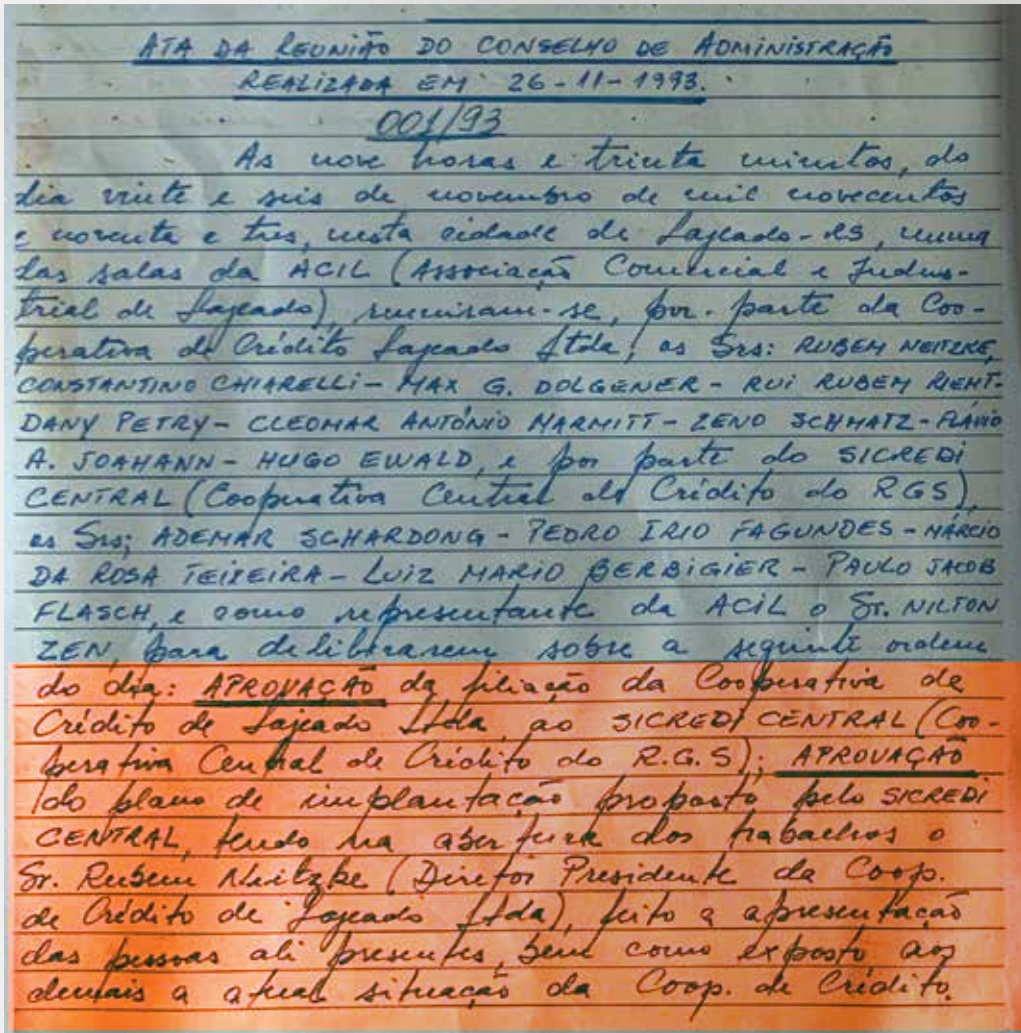 ATA DA REUNIÃO DO CONSELHO DE ADMINISTRAÇÃO
REALIZADA EM 26-11-1993.
001/93
As nove horas e trinta minutos, do
dia vinte e seis de novembro de mil novecentos
e noventa e tres, nesta cidade de Lajeado-RS, numa
das salas da ACIL (Associação Comercial e Indus-
trial de Lajeado), reuniram-se, por parte da Coo-
perativa de Crédito Lajeado Ltda, os Srs: RUBEM NEITZKE,
CONSTANTINO CHIARELLI- MAX G. DOLGENER - RUI RUBEM RIEHT-
DANY PETRY- CLEOMAR ANTÔNIO MARMITT- ZENO SCHMATZ- FLÁVIO
A. JOAHANN- HUGO EWALD, e por parte do SICREDI
CENTRAL (Cooperativa Central de Crédito do RGS),
os Srs; ADEMAR SCHARDONG - PEDRO IRIO FAGUNDES - MÁRCIO
DA ROSA TEIXEIRA- LUIZ MARIO BERBIGIER - PAULO JACOB
FLASCH, e como representante da ACIL o Sr. NILTON
ZEN, para deliberarem sobre a seguinte ordem
do dia: APROVAÇÃO da filiação da Cooperativa de
Crédito de Lajeado Ltda, ao SICREDI CENTRAL (Coo-
perativa Central de Crédito do R.G.S); APROVAÇÃO
do plano de implantação proposto pelo SICREDI
CENTRAL, tendo na abertura dos trabalhos o
Sr. Rubem Neitzke (Diretor Presidente da Coop.
de Crédito de Lajeado Ltda), feito a apresentação
das pessoas ali presentes, bem como exposto aos
demais a atual situação da Coop. de Crédito.